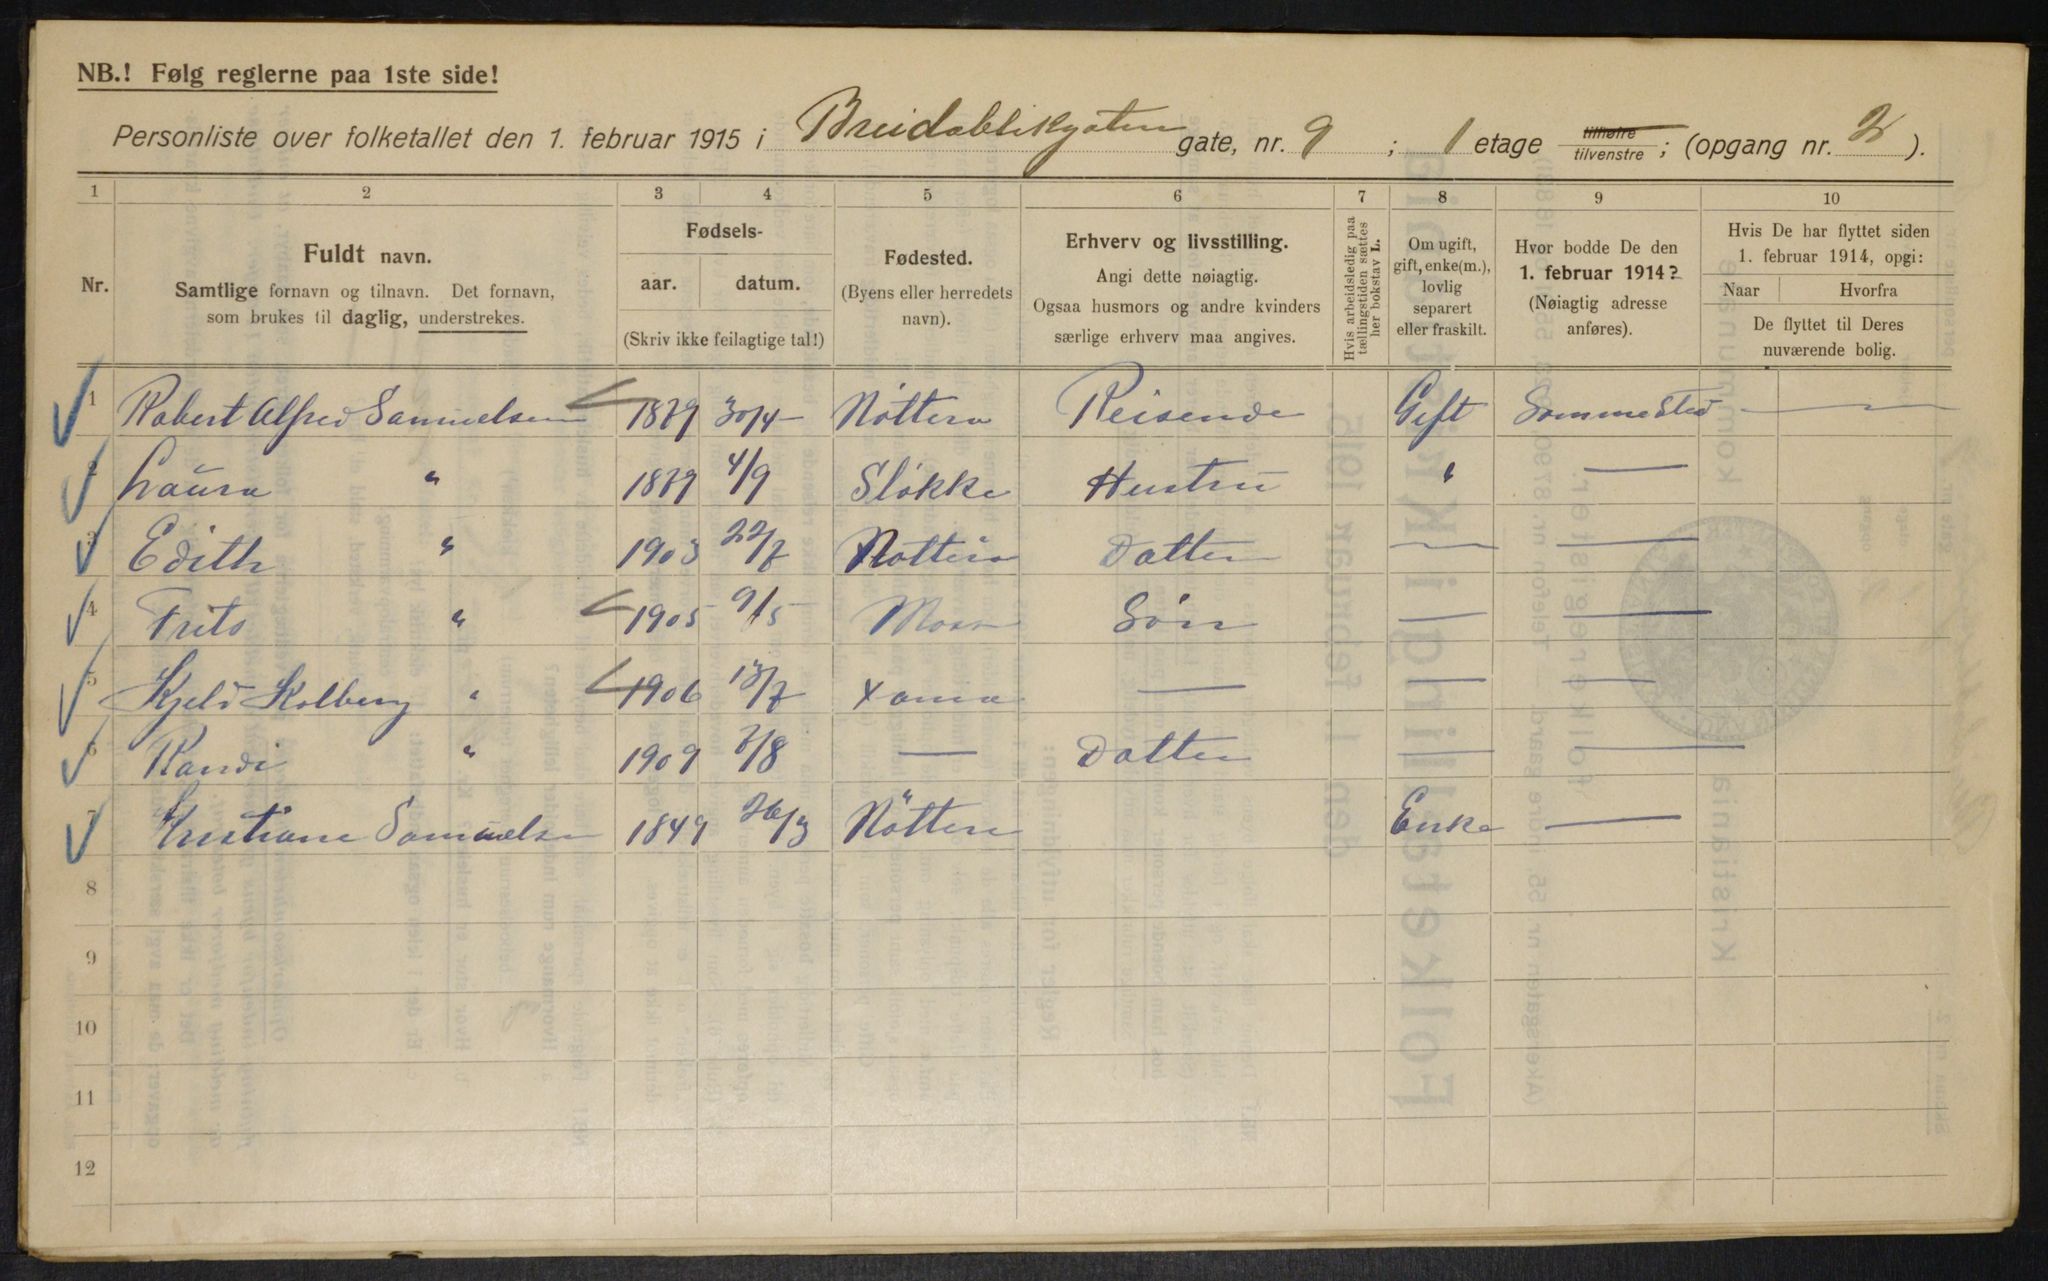 NB.! Følg reglerne paa 1ste side!
Personliste over folketallet den 1. februar 1915 i Breidablikgaten gate, nr. 9 ; 1 etage tilhøire tilvenstre ; (opgang nr. 2 ).
1 2 3 4 5 6 7 8 9 10
Nr.
Fuldt navn.
Samtlige fornavn og tilnavn. Det fornavn,
som brukes til daglig, understrekes.
Fødsels-
aar. datum.
(Skriv ikke feilagtige tal!)
Fødested.
(Byens eller herredets
navn).
Erhverv og livsstilling.
Angi dette nøiagtig.
Ogsaa husmors og andre kvinders
særlige erhverv maa angives.
Hvis arbeidsledig paa
tællingstiden sættes
her bokstav L.
Om ugift,
gift, enke(m.),
lovlig
separert
eller fraskilt.
Hvor bodde De den
1. februar 1914?
(Nøiagtig adresse
anføres).
Hvis De har flyttet siden
1. februar 1914, opgi:
Naar Hvorfra
De flyttet til Deres
nuværende bolig.
1 Robert Alfred Samuelsen 1879 30/4 Nötterö Reisende Gift Sammested —
2 Laura " 1879 4/9 Slökke Hustru " —
3 Edith " 1903 22/7 Nötterö Datter — —
4 Frits " 1905 9/5 Moss Sön — —
5 Kjeld Kolberg " 1906 13/7 — — —
6 Randi " 1909 3/8 — Datter — —
7 Kristiane Samuelsen 1849 26/3 Nötterö Enke —
8
9
10
11
12